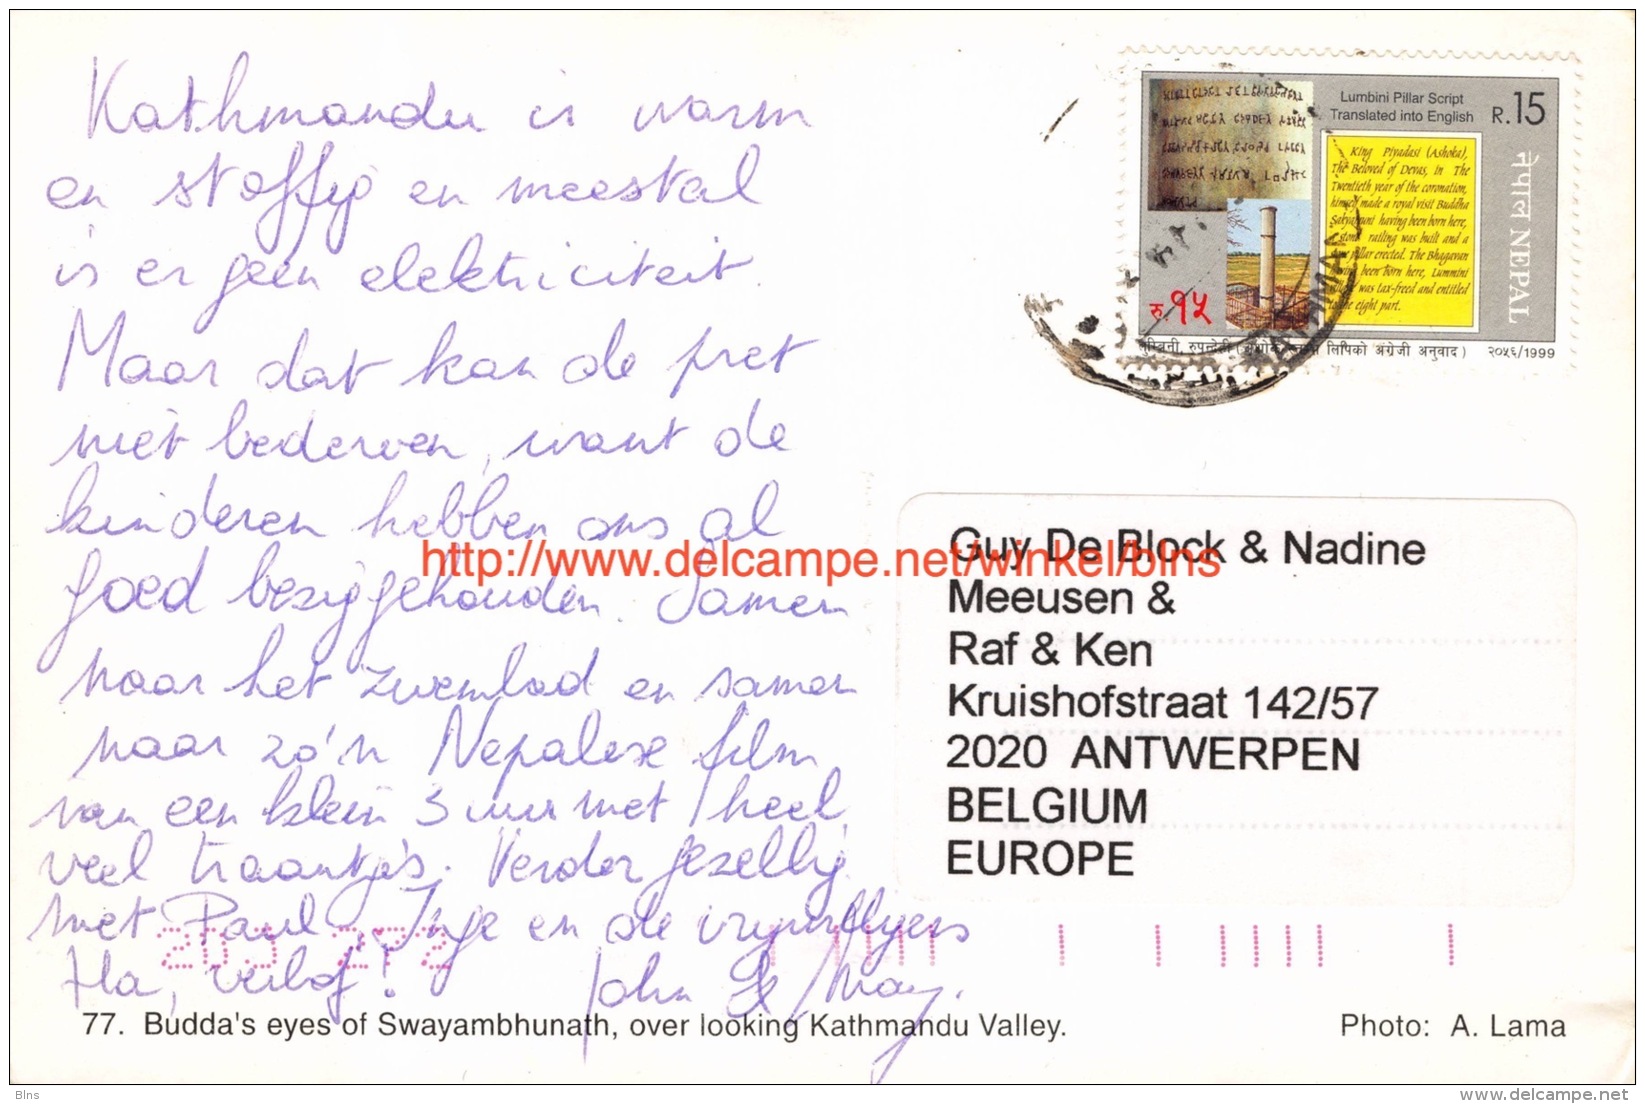 Kathmandu is warm
en stoffig en meestal
is er geen elektriciteit.
Maar dat kan de pret
niet bederven, want de
kinderen hebben ons al
goed beziggehouden. Samen
naar het zwembad en samen
naar zo'n Nepalese film
van een klein 3 uur met heel
veel traantjes. Verder gezellig
met Paul, Inge en de
Ha, verlof!
John
Lumbini Pillar Script
Translated into English
R. 15
King Piyadasi (Ashoka),
The Beloved of Devas, in The
Twentieth year of the coronation,
himself made a royal visit Buddha
Sakyamuni having been born here,
a stone railing was built and a
pillar erected. The Bhagavan
having been born here, Lummini
village was tax-freed and entitled
to the eight part.
नेपाल NEPAL
रु १५
लुम्बिनी, रुपन्देही (अशोक स्तम्भ लिपिको अंग्रेजी अनुवाद) २०५६/1999
http://www.delcampe.net/winkel/blns
Guy De Block & Nadine
Meeusen &
Raf & Ken
Kruishofstraat 142/57
2020 ANTWERPEN
BELGIUM
EUROPE
77. Budda's eyes of Swayambhunath, over looking Kathmandu Valley.
Photo: A. Lama
Blns
www.delcampe.net